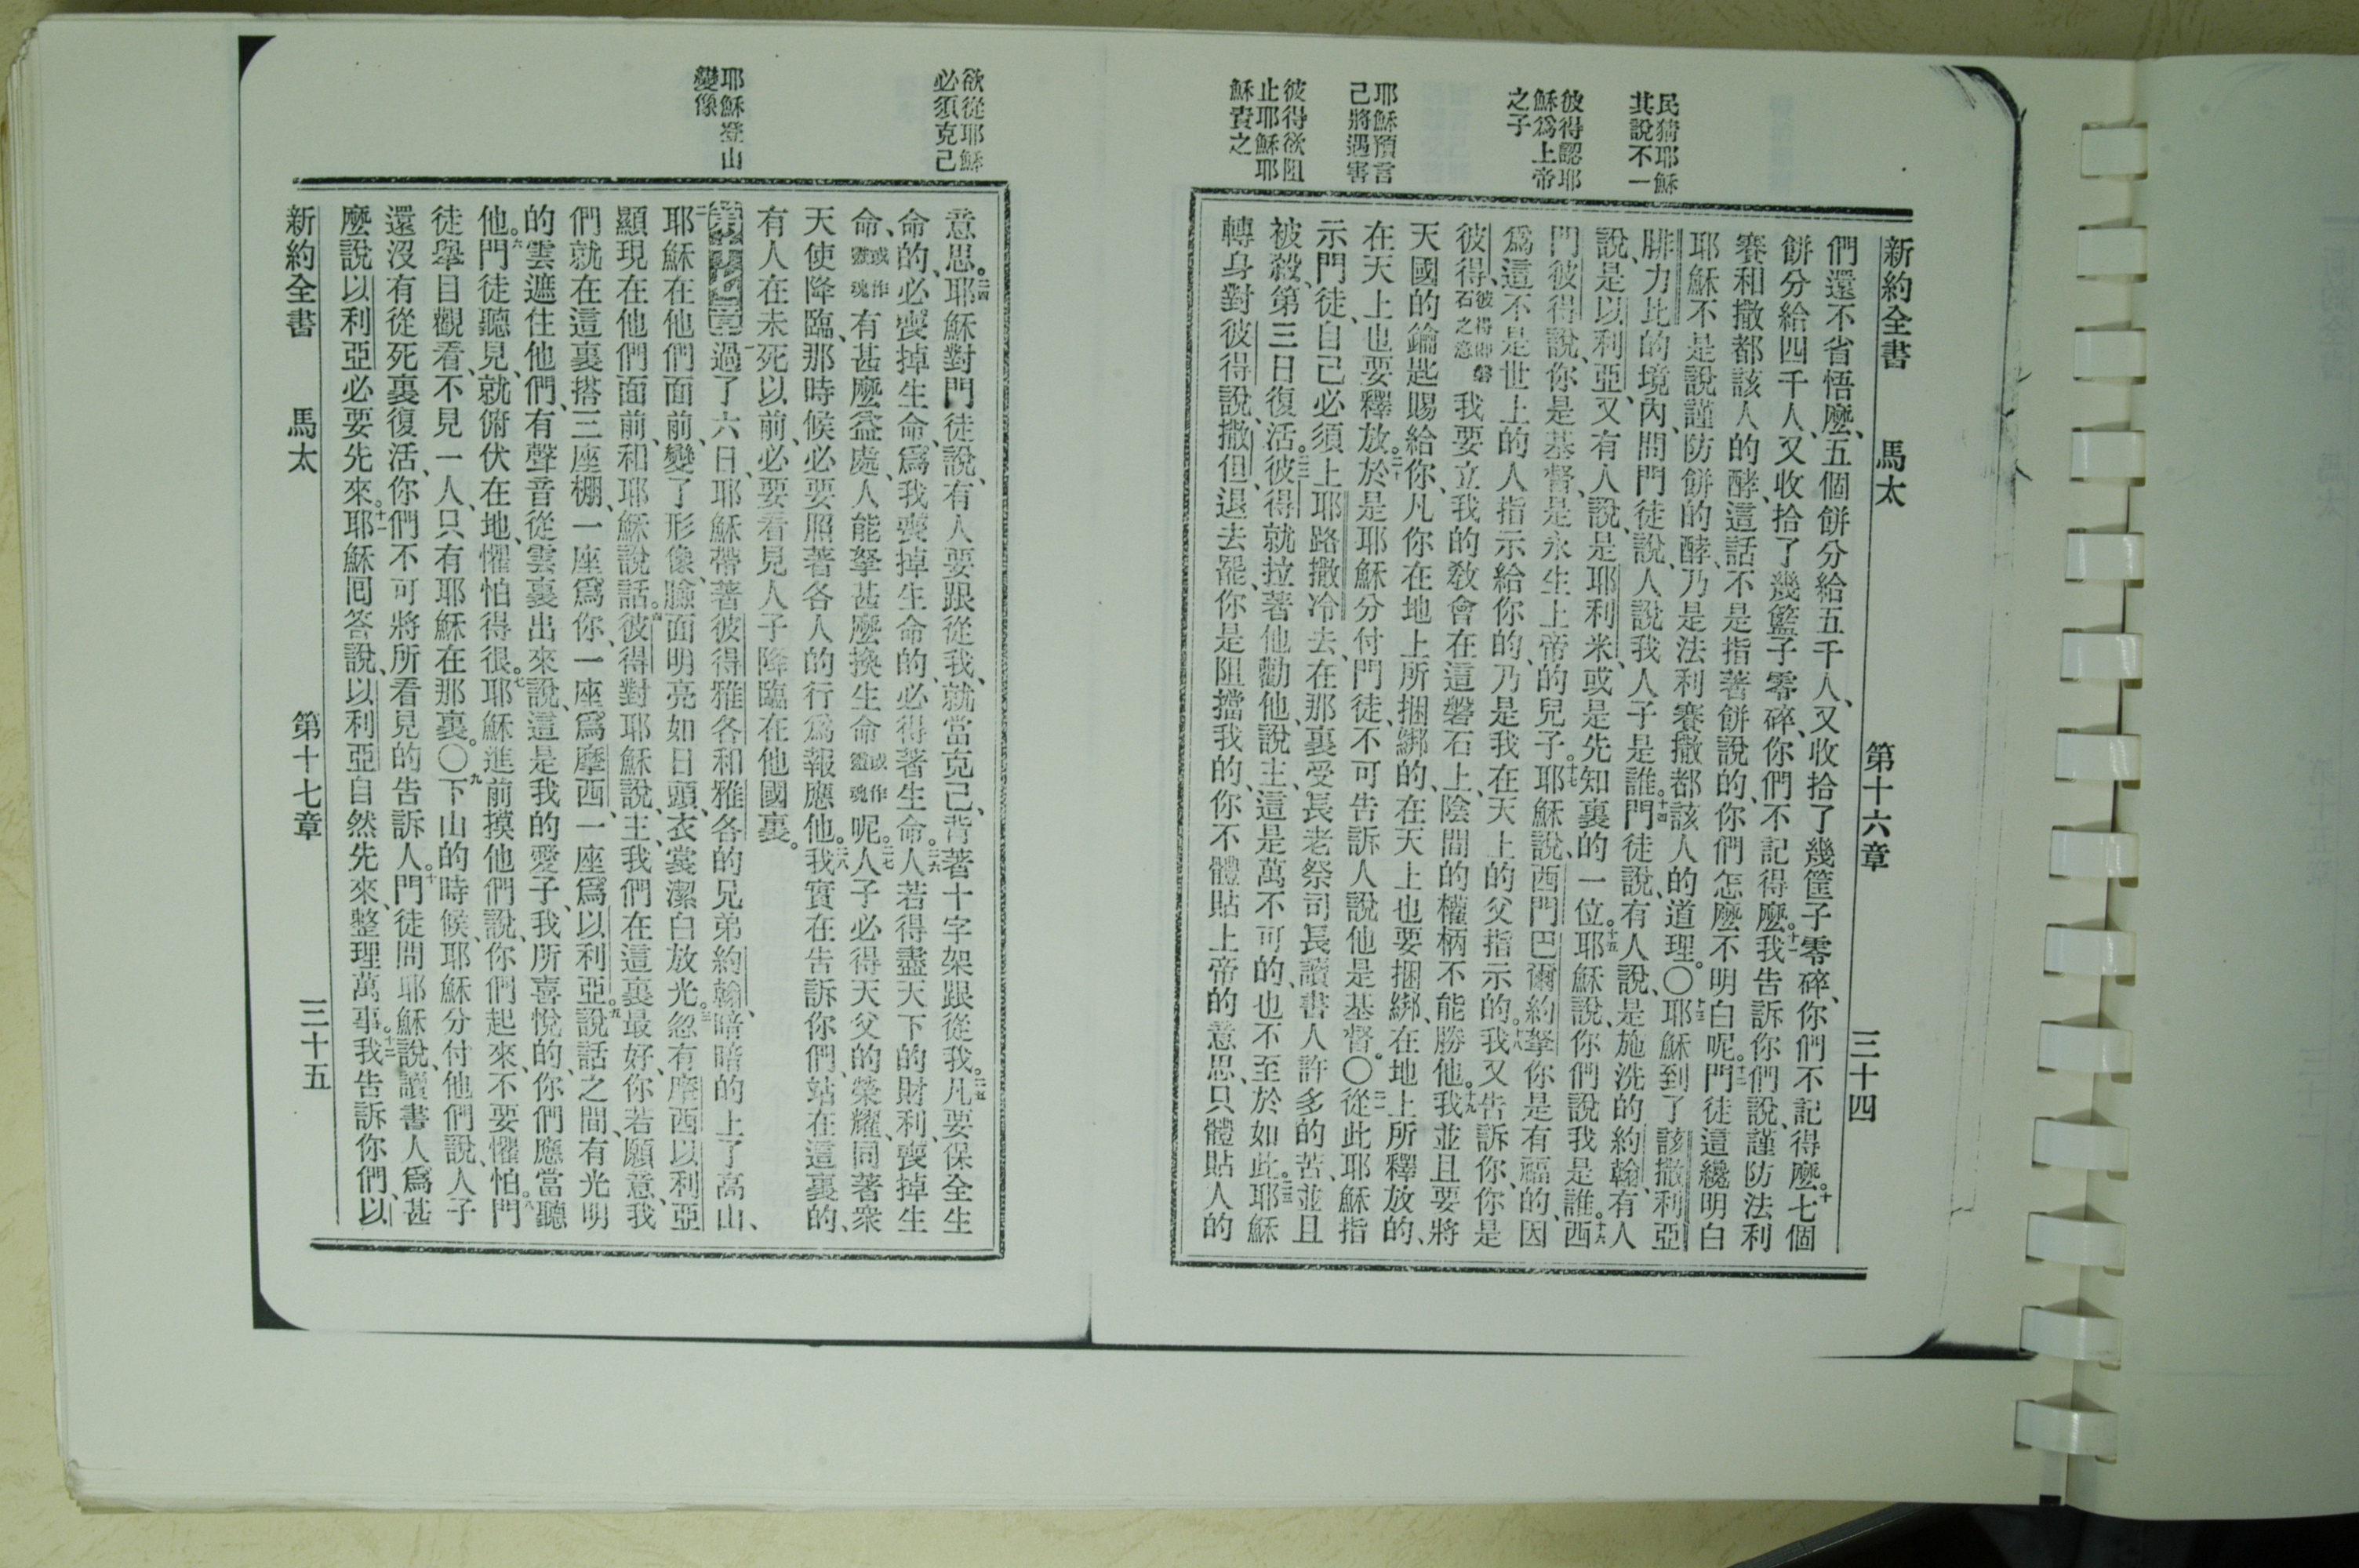 新約全書 馬太 第十六章 三十四
民猜耶穌
其說不一
彼得認耶
穌爲上帝
之子
耶穌預言
己將遇害
彼得欲阻
止耶穌耶
穌責之
們還不省悟麼、五個餅分給五千人、又收拾了幾筐子零碎、你們不記得麼。十七個
餅分給四千人、又收拾了幾籃子零碎、你們不記得麼。十一我告訴你們說、謹防法利
賽和撒都該人的酵、這話不是指著餅說的、你們怎麼不明白呢。十二門徒這纔明白
耶穌不是說謹防餅的酵、乃是法利賽撒都該人的道理。〇十三耶穌到了該撒利亞
腓力比的境內、問門徒說、人說我人子是誰。十四門徒說、有人說、是施洗的約翰、有人
說、是以利亞、又有人說、是耶利米、或是先知裏的一位。十五耶穌說、你們說我是誰。十六西
門彼得說、你是基督、是永生上帝的兒子。十七耶穌說、西門巴爾約拏你是有福的、因
爲這不是世上的人指示給你的、乃是我在天上的父指示的。十八我又告訴你、你是
彼得、彼得卽磐石之意我要立我的敎會在這磐石上、陰間的權柄不能勝他。十九我並且要將
天國的鑰匙賜給你、凡你在地上所捆綁的、在天上也要捆綁、在地上所釋放的、
在天上也要釋放。二十於是耶穌分付門徒、不可告訴人說他是基督。〇二一從此耶穌指
示門徒、自己必須上耶路撒冷去、在那裏受長老祭司長讀書人許多的苦、並且
被殺、第三日復活。二二彼得就拉著他勸他、說、主、這是萬不可的、也不至於如此。二三耶穌
轉身對彼得說、撒但、退去罷、你是阻擋我的、你不體貼上帝的意思、只體貼人的
欲從耶穌
必須克己
耶穌登山
變像
意思。二四耶穌對門徒說、有人要跟從我、就當克己、背著十字架跟從我。二五凡要保全生
命的、必喪掉生命、爲我喪掉生命的、必得著生命。二六人若得盡天下的財利、喪掉生
命、或作靈魂有甚麼益處、人能拏甚麼換生命或作靈魂呢。二七人子必得天父的榮耀、同著衆
天使降臨、那時候必要照著各人的行爲報應他。二八我實在告訴你們、站在這裏的、
有人在未死以前、必要看見人子降臨在他國裏。
第十七章 一過了六日、耶穌帶著彼得雅各和雅各的兄弟約翰、暗暗的上了高山、
二耶穌在他們面前、變了形像、臉面明亮如日頭、衣裳潔白放光。三忽有摩西以利亞
顯現在他們面前、和耶穌說話。四彼得對耶穌說、主、我們在這裏最好、你若願意、我
們就在這裏搭三座棚、一座爲你、一座爲摩西、一座爲以利亞。五說話之間、有光明
的雲遮住他們、有聲音從雲裏出來、說、這是我的愛子、我所喜悅的、你們應當聽
他。六門徒聽見、就俯伏在地、懼怕得很。七耶穌進前摸他們、說、你們起來、不要懼怕。八門
徒舉目觀看、不見一人、只有耶穌在那裏。〇九下山的時候、耶穌分付他們說、人子
還沒有從死裏復活、你們不可將所看見的告訴人。十門徒問耶穌說、讀書人爲甚
麼說以利亞必要先來。十一耶穌囘答說、以利亞自然先來、整理萬事。十二我告訴你們、以
新約全書 馬太 第十七章 三十五